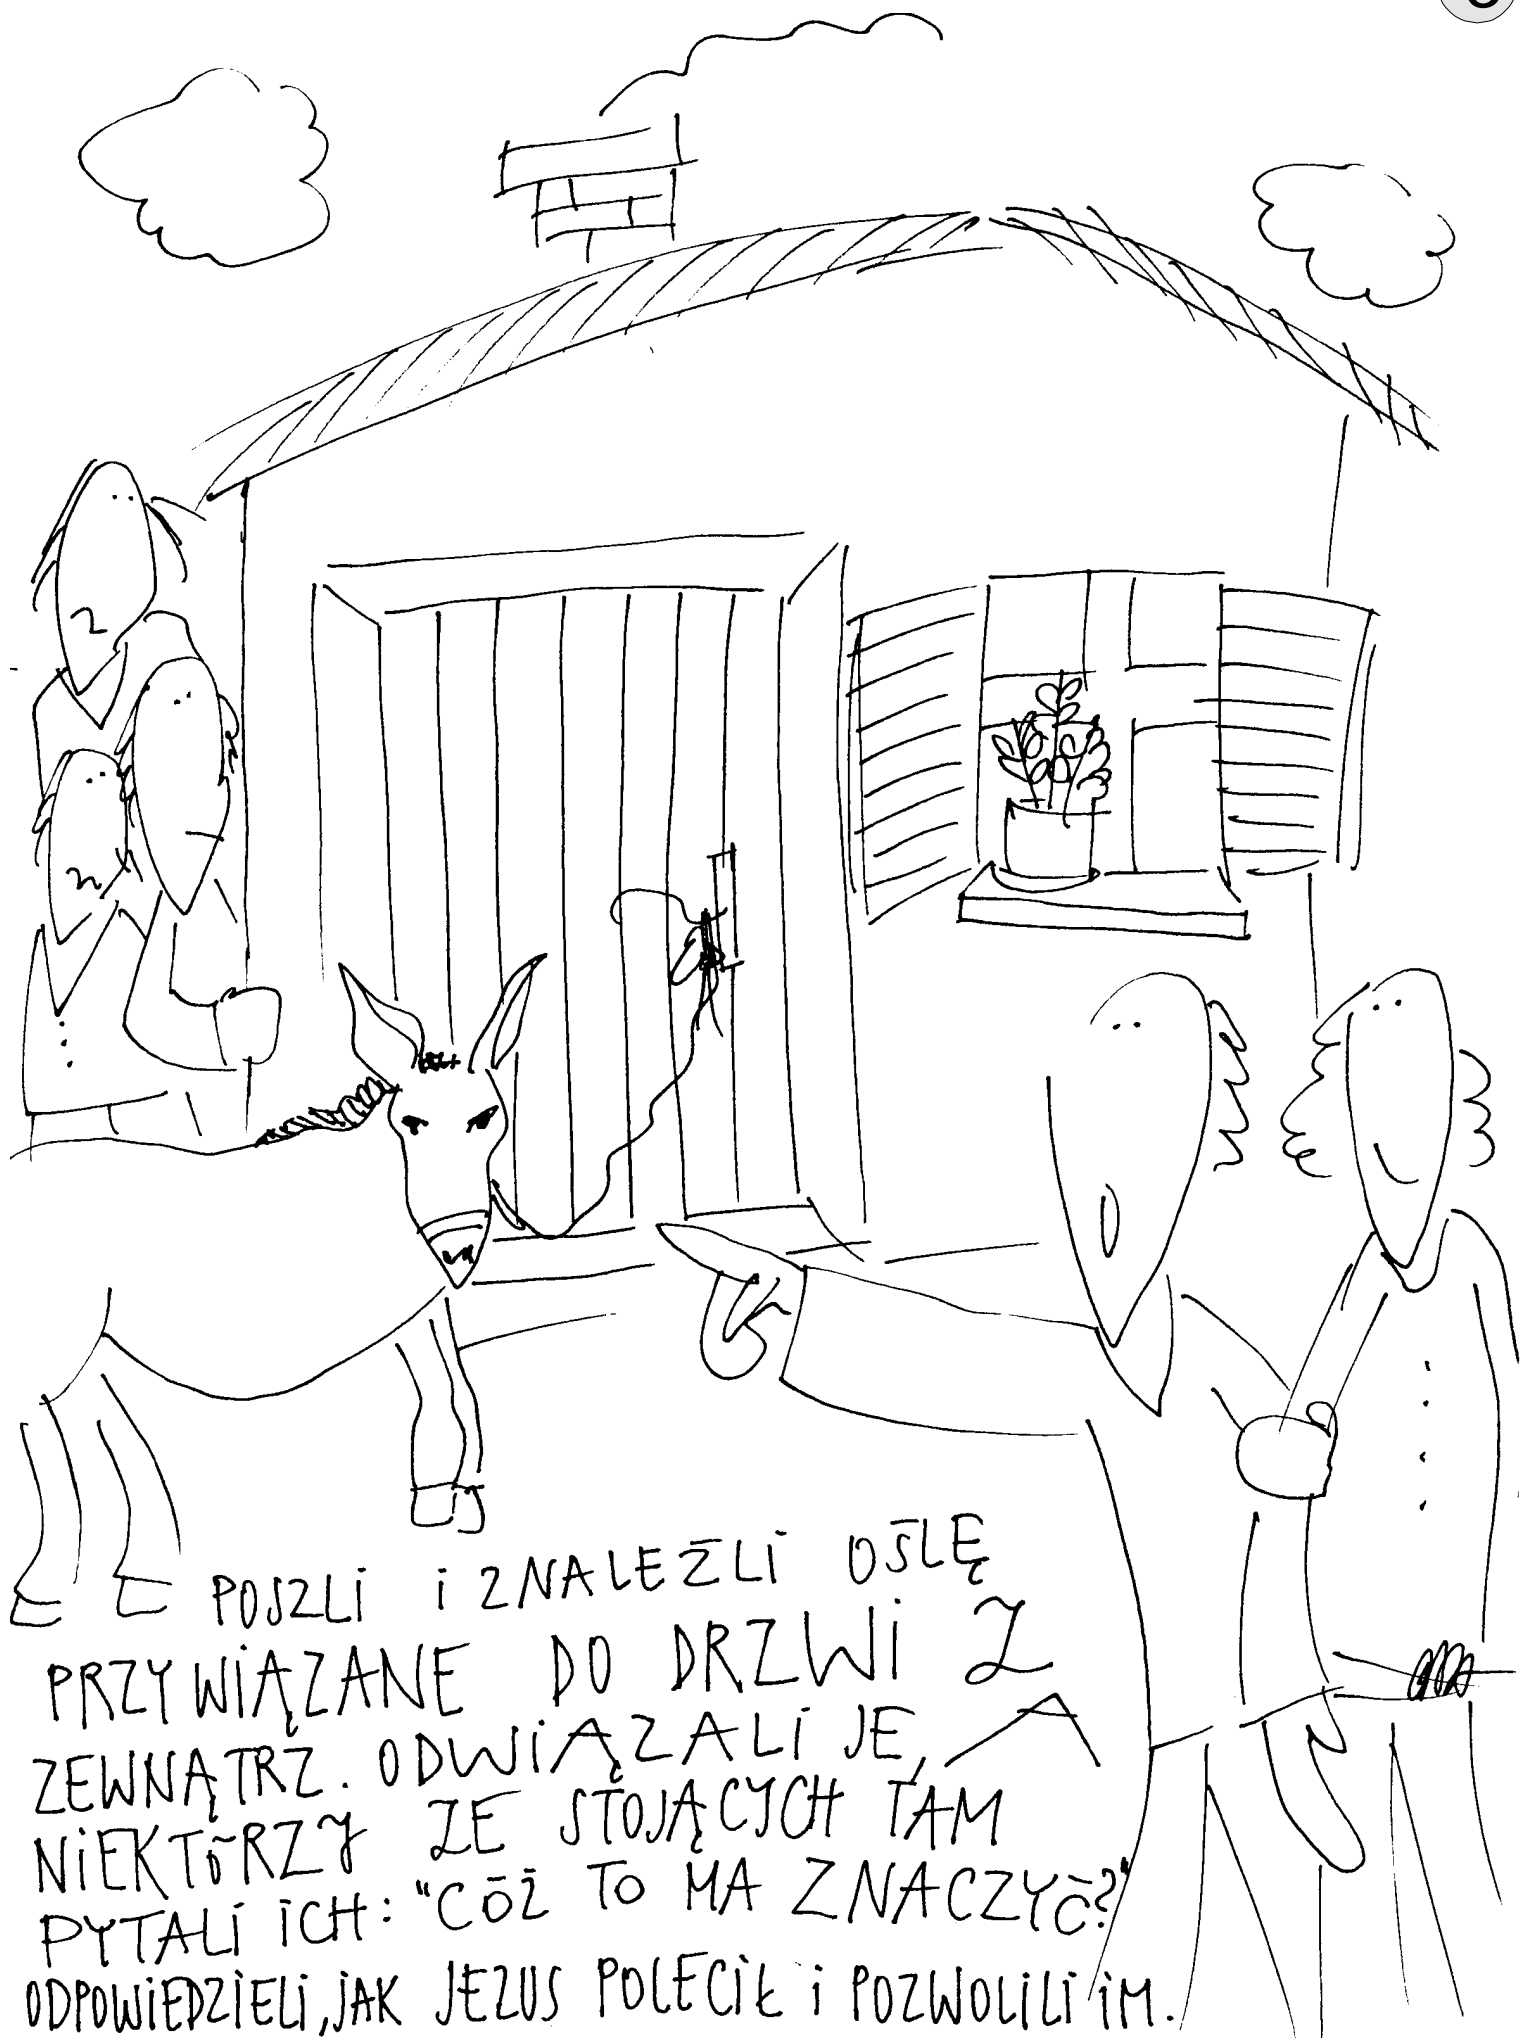 POSZLI i ZNALEŹLI OŚLĘ
PRZYWIĄZANE DO DRZWI Z
ZEWNĄTRZ. ODWIĄZALI JE, A
NIEKTÓRZY ZE STOJĄCYCH TAM
PYTALI ICH: "CÓŻ TO MA ZNACZYĆ?"
ODPOWIEDZIELI, JAK JEZUS POLECIŁ i POZWOLILI IM.